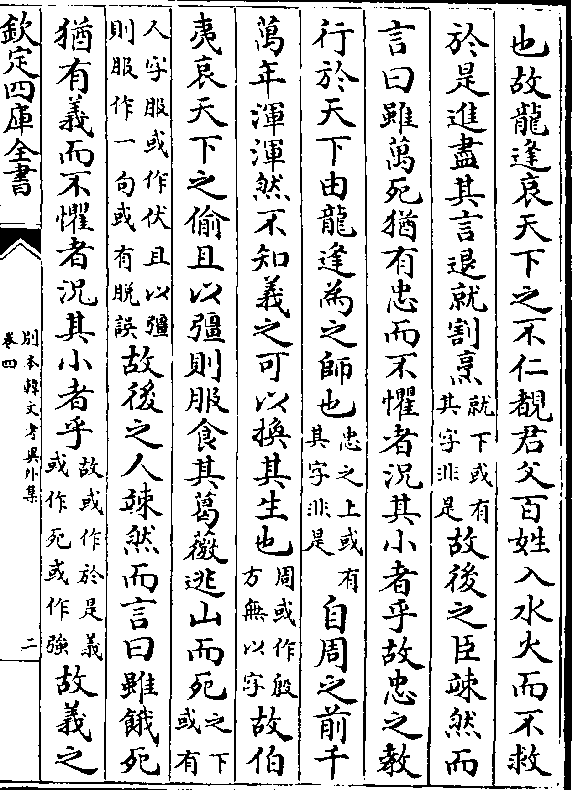 也故龍逄哀天下之不仁覩君父百姓入水火而不救
於是進盡其言退就割烹就下或有其字非是故後之臣竦然而
言曰雖萬死猶有忠而不懼者況其小者乎故忠之教
行於天下由龍逄為之師也忠之上或有其字非是自周之前千
萬年渾渾然不知義之可以換其生也周或作殷方無以字故伯
夷哀天下之偷且以彊則服食其葛薇逃山而死之下或有
人字服或作伏且以彊則服作一句或有脱誤故後之人竦然而言曰雖餓死
猶有義而不懼者況其小者乎故或作於是義或作死或作強故義之
欽定四庫全書
別本韓文考異外集
卷四
二